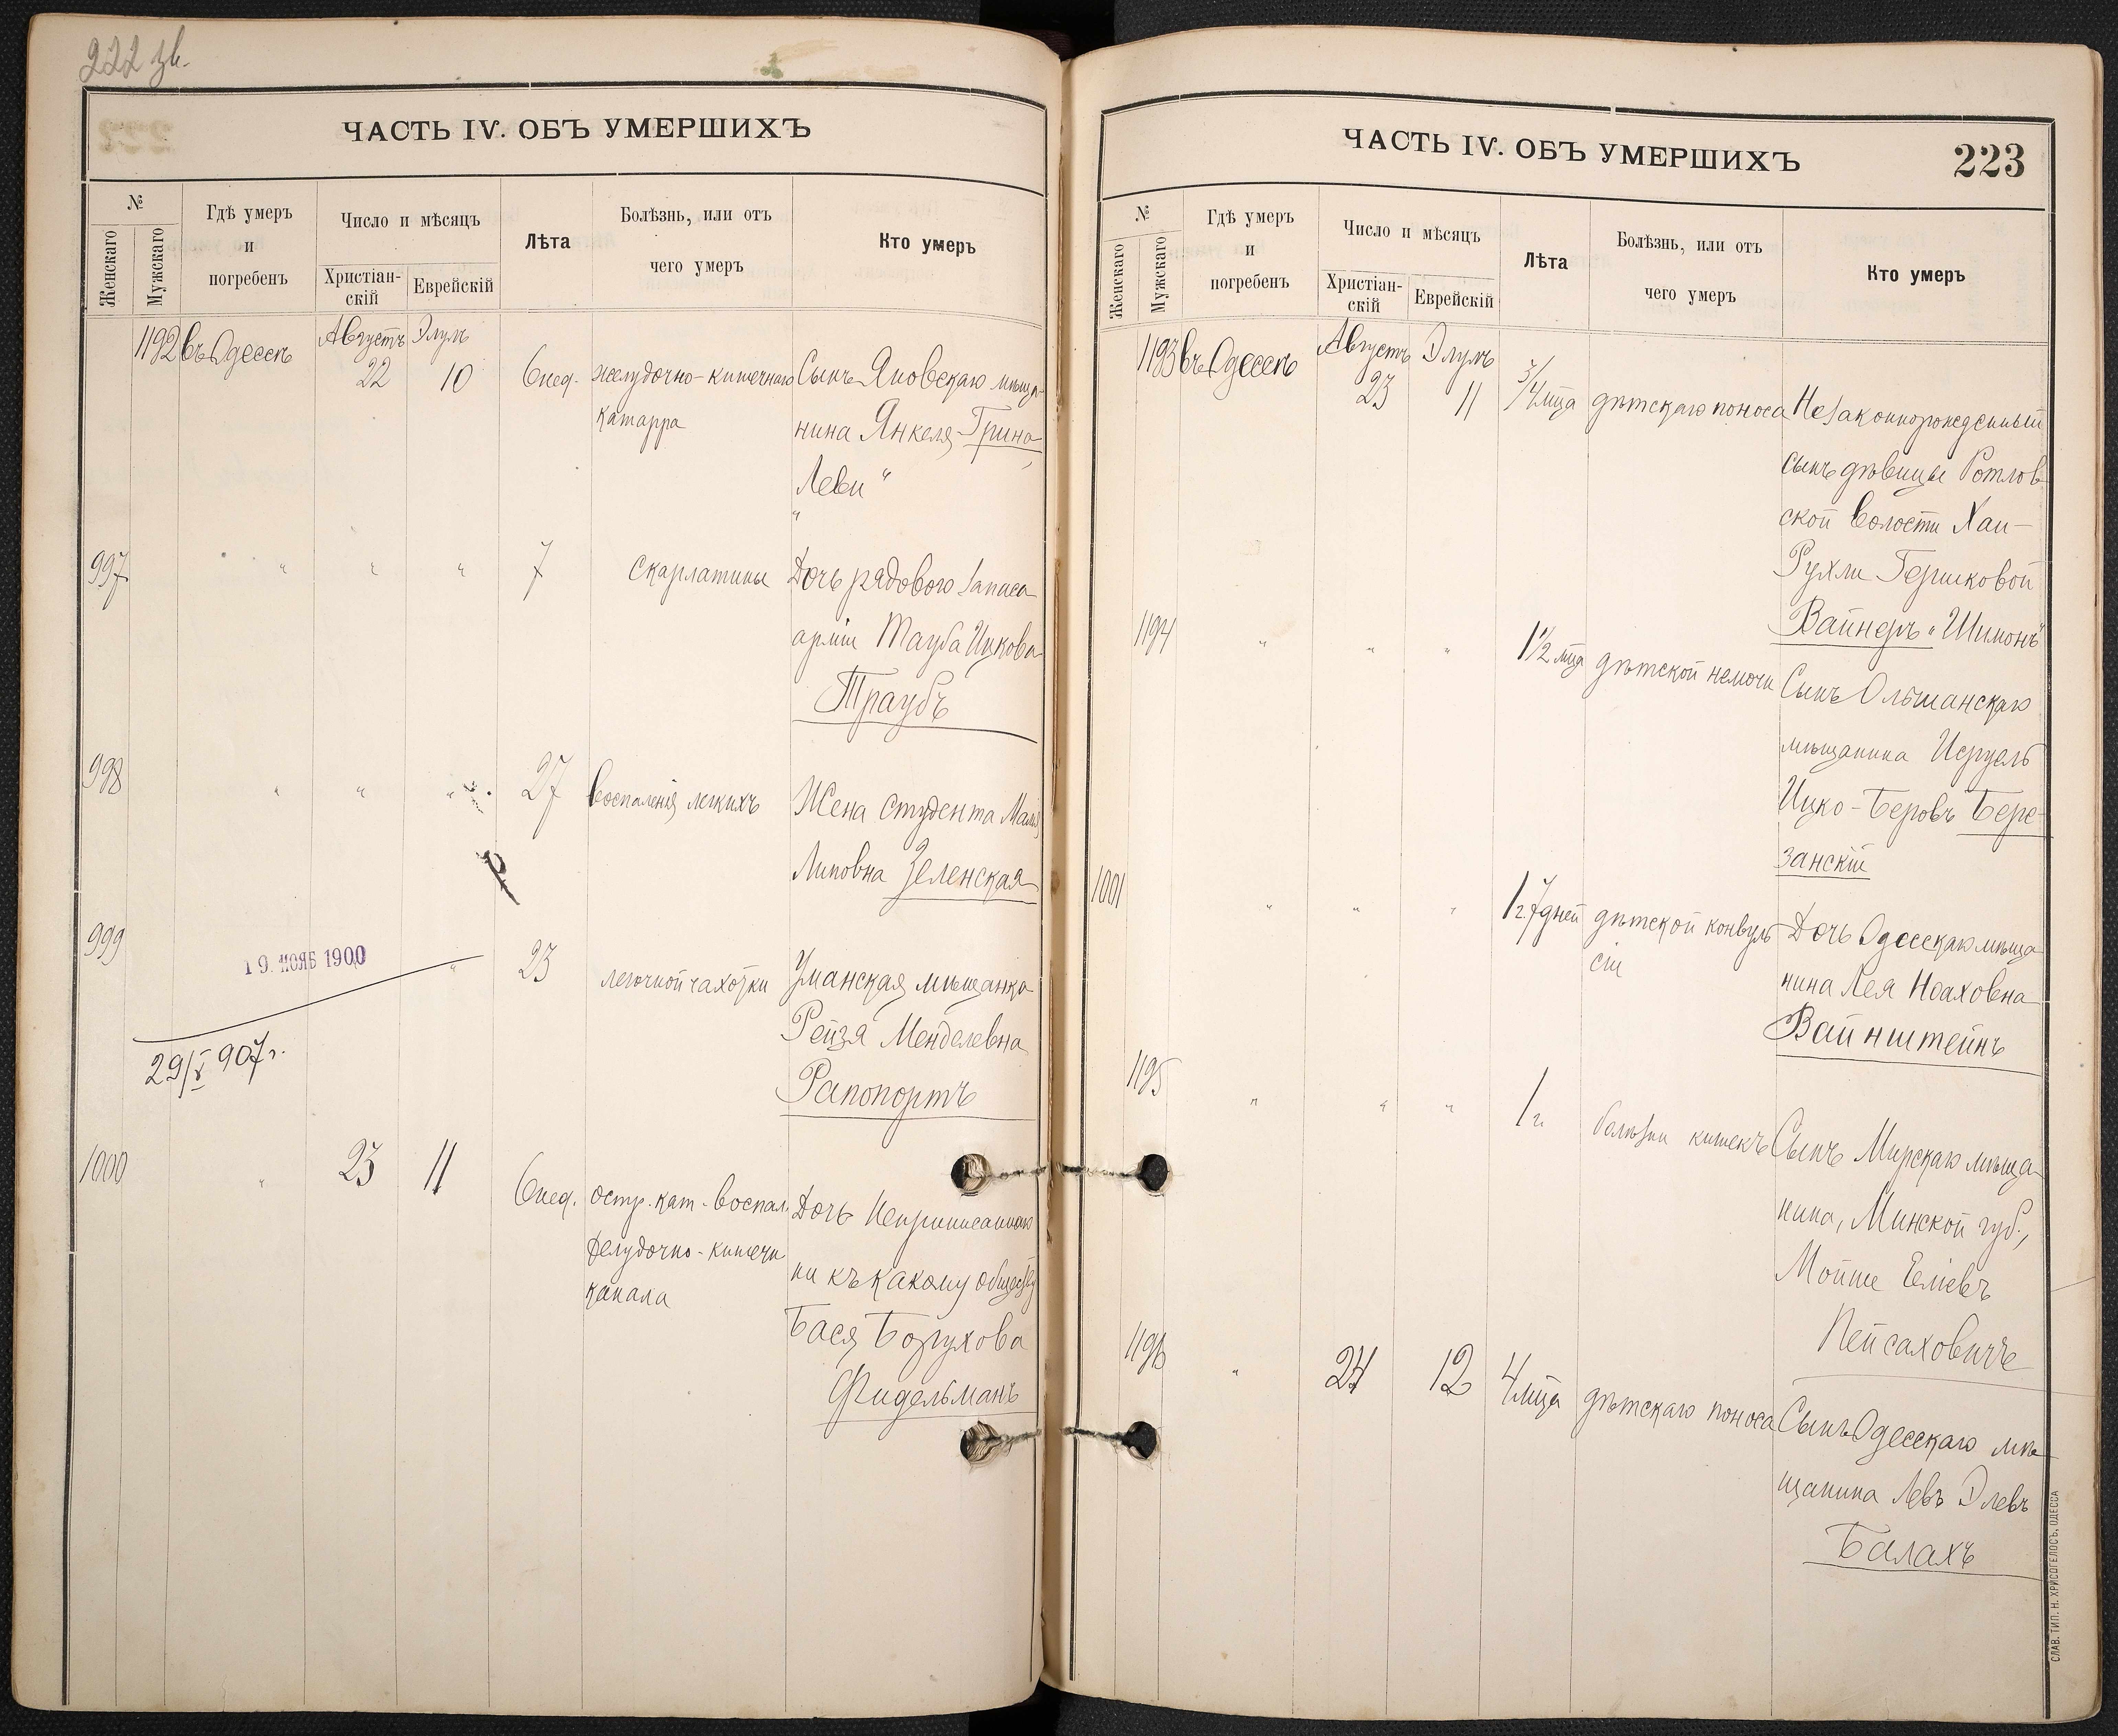 222 зв.
ЧАСТЬ IV. ОБЪ УМЕРШИХЪ
№
Женскаго
Мужскаго
Гдѣ умеръ
и
погребенъ
Число и мѣсяцъ
Христіан-
скій
Еврейскій
Лѣта
Болѣзнь, или отъ
чего умеръ
Кто умеръ
1192 въ Одессѣ Августъ Элулъ
22 10 6 нед. желудочно-кишечнаго Сынъ Яновскаго мѣща-
катарра нина Янкеля Грина
Леви "
"
997 " " " 7 скарлатины Дочь рядового запаса
арміи Тауба Ицкова
Траубъ
998 " " " 27 воспаленія легкихъ Жена студента
Липовна Зеленская
999 19. НОЯБ 1900 " 23 легочной чахотки Уманская мѣщанка
Рейзя Менделевна
29/X 907 г.
Рапопортъ
1000 " 23 11 6 нед. остр. кат. воспал. Дочь Неприписаннаго
желудочно-кишечн. ни къ какому обществу
канала
Бася Борухова
Фидельманъ
ЧАСТЬ IV. ОБЪ УМЕРШИХЪ
223
№
Женскаго
Мужскаго
Гдѣ умеръ
и
погребенъ
Число и мѣсяцъ
Христіан-
скій
Еврейскій
Лѣта
Болѣзнь, или отъ
чего умеръ
Кто умеръ
1193 въ Одессѣ Августъ Элулъ
23 11 3/4 мца дѣтскаго поноса Незаконнорожденный
сынъ дѣвицы Ротлов-
ской волости Хаи-
Рухли Гершковой
Вайнеръ "Шимонъ"
1194 " " " 1 1/2 мца дѣтской немочи Сынъ Ольшанскаго
мѣщанина Исруель
Ицко-Беровъ Бере-
занскій
1001 " " " 1 г. 7 дней дѣтской конвуль- Дочь Одесскаго мѣща-
сіи нина Лея Ноаховна
Вайнштейнъ
1195 " " " 1 г. болѣзни кишекъ Сынъ Мирскаго мѣща-
нина, Минской губ.,
Мойше Еліевъ
Пейсаховичъ
1196 " 24 12 4 мца дѣтскаго поноса Сынъ Одесскаго мѣ-
щанина Левъ Элевъ
Балахъ
СЛАВ. ТИП. Н. ХРИСОГЕЛОСЪ, ОДЕССА